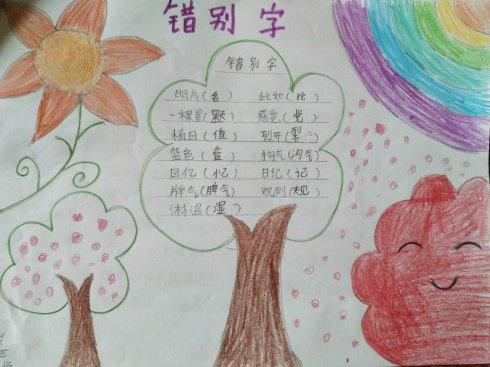 错别字
错别字
明片(名) 此如(比)
一棵星(颗) 感觉(觉)
植日(值) 列开(裂)
篮色(蓝) 淘气(淘气)
回忆(忆) 日纪(记)
脾气(脾气) 观则(规)
淋湿(湿)